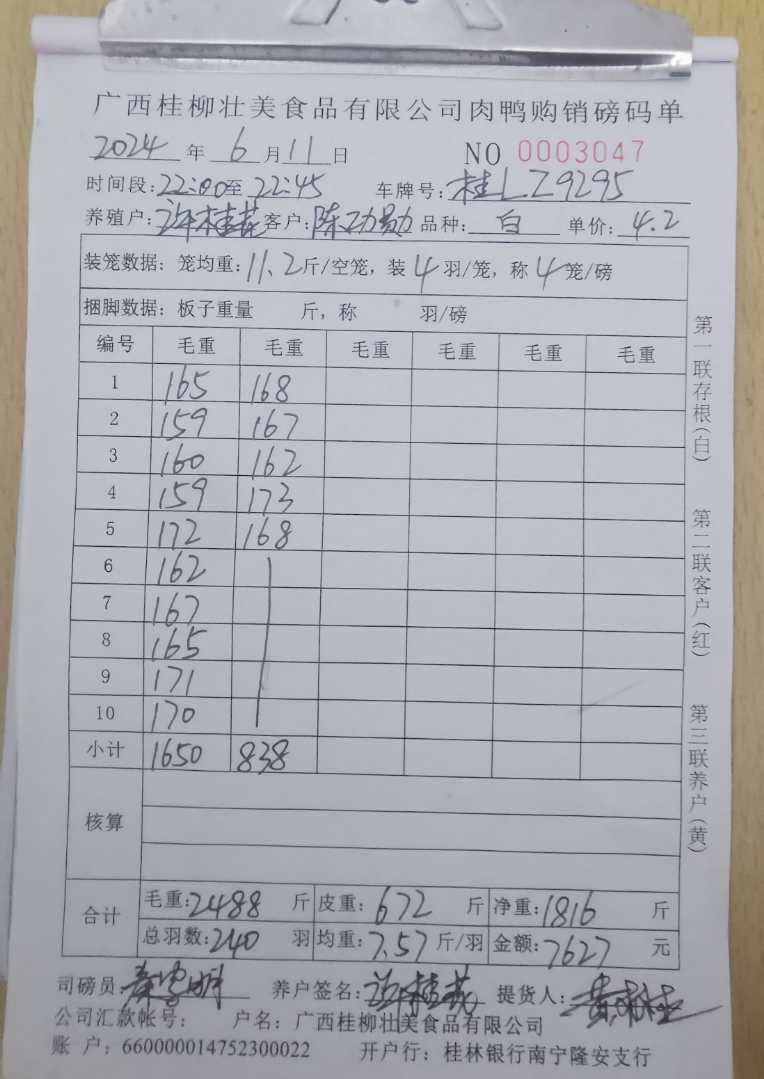 广西桂柳壮美食品有限公司肉鸭购销磅码单
2024 年 6 月 11 日 NO 0003047
时间段:22:00至 22:45 车牌号:桂LZ9295
养殖户:许桂花 客户:陈功勋 品种:白 单价:4.2
装笼数据:笼均重:11.2斤/空笼,装4羽/笼,称4笼/磅
捆脚数据:板子重量 斤,称 羽/磅
编号 毛重 毛重 毛重 毛重 毛重 毛重
1 165 168
2 159 167
3 160 162
4 159 173
5 172 168
6 162
7 167
8 165
9 171
10 170
小计 1650 838
核算
合计 毛重:2488 斤 皮重:672 斤 净重:1816 斤
总羽数:240 羽 均重:7.57斤/羽 金额:7627 元
司磅员: 养户签名:许桂花 提货人:
公司汇款帐号: 户名:广西桂柳壮美食品有限公司
账 户:660000014752300022 开户行:桂林银行南宁隆安支行
第一联存根(白) 第二联客户(红) 第三联养户(黄)